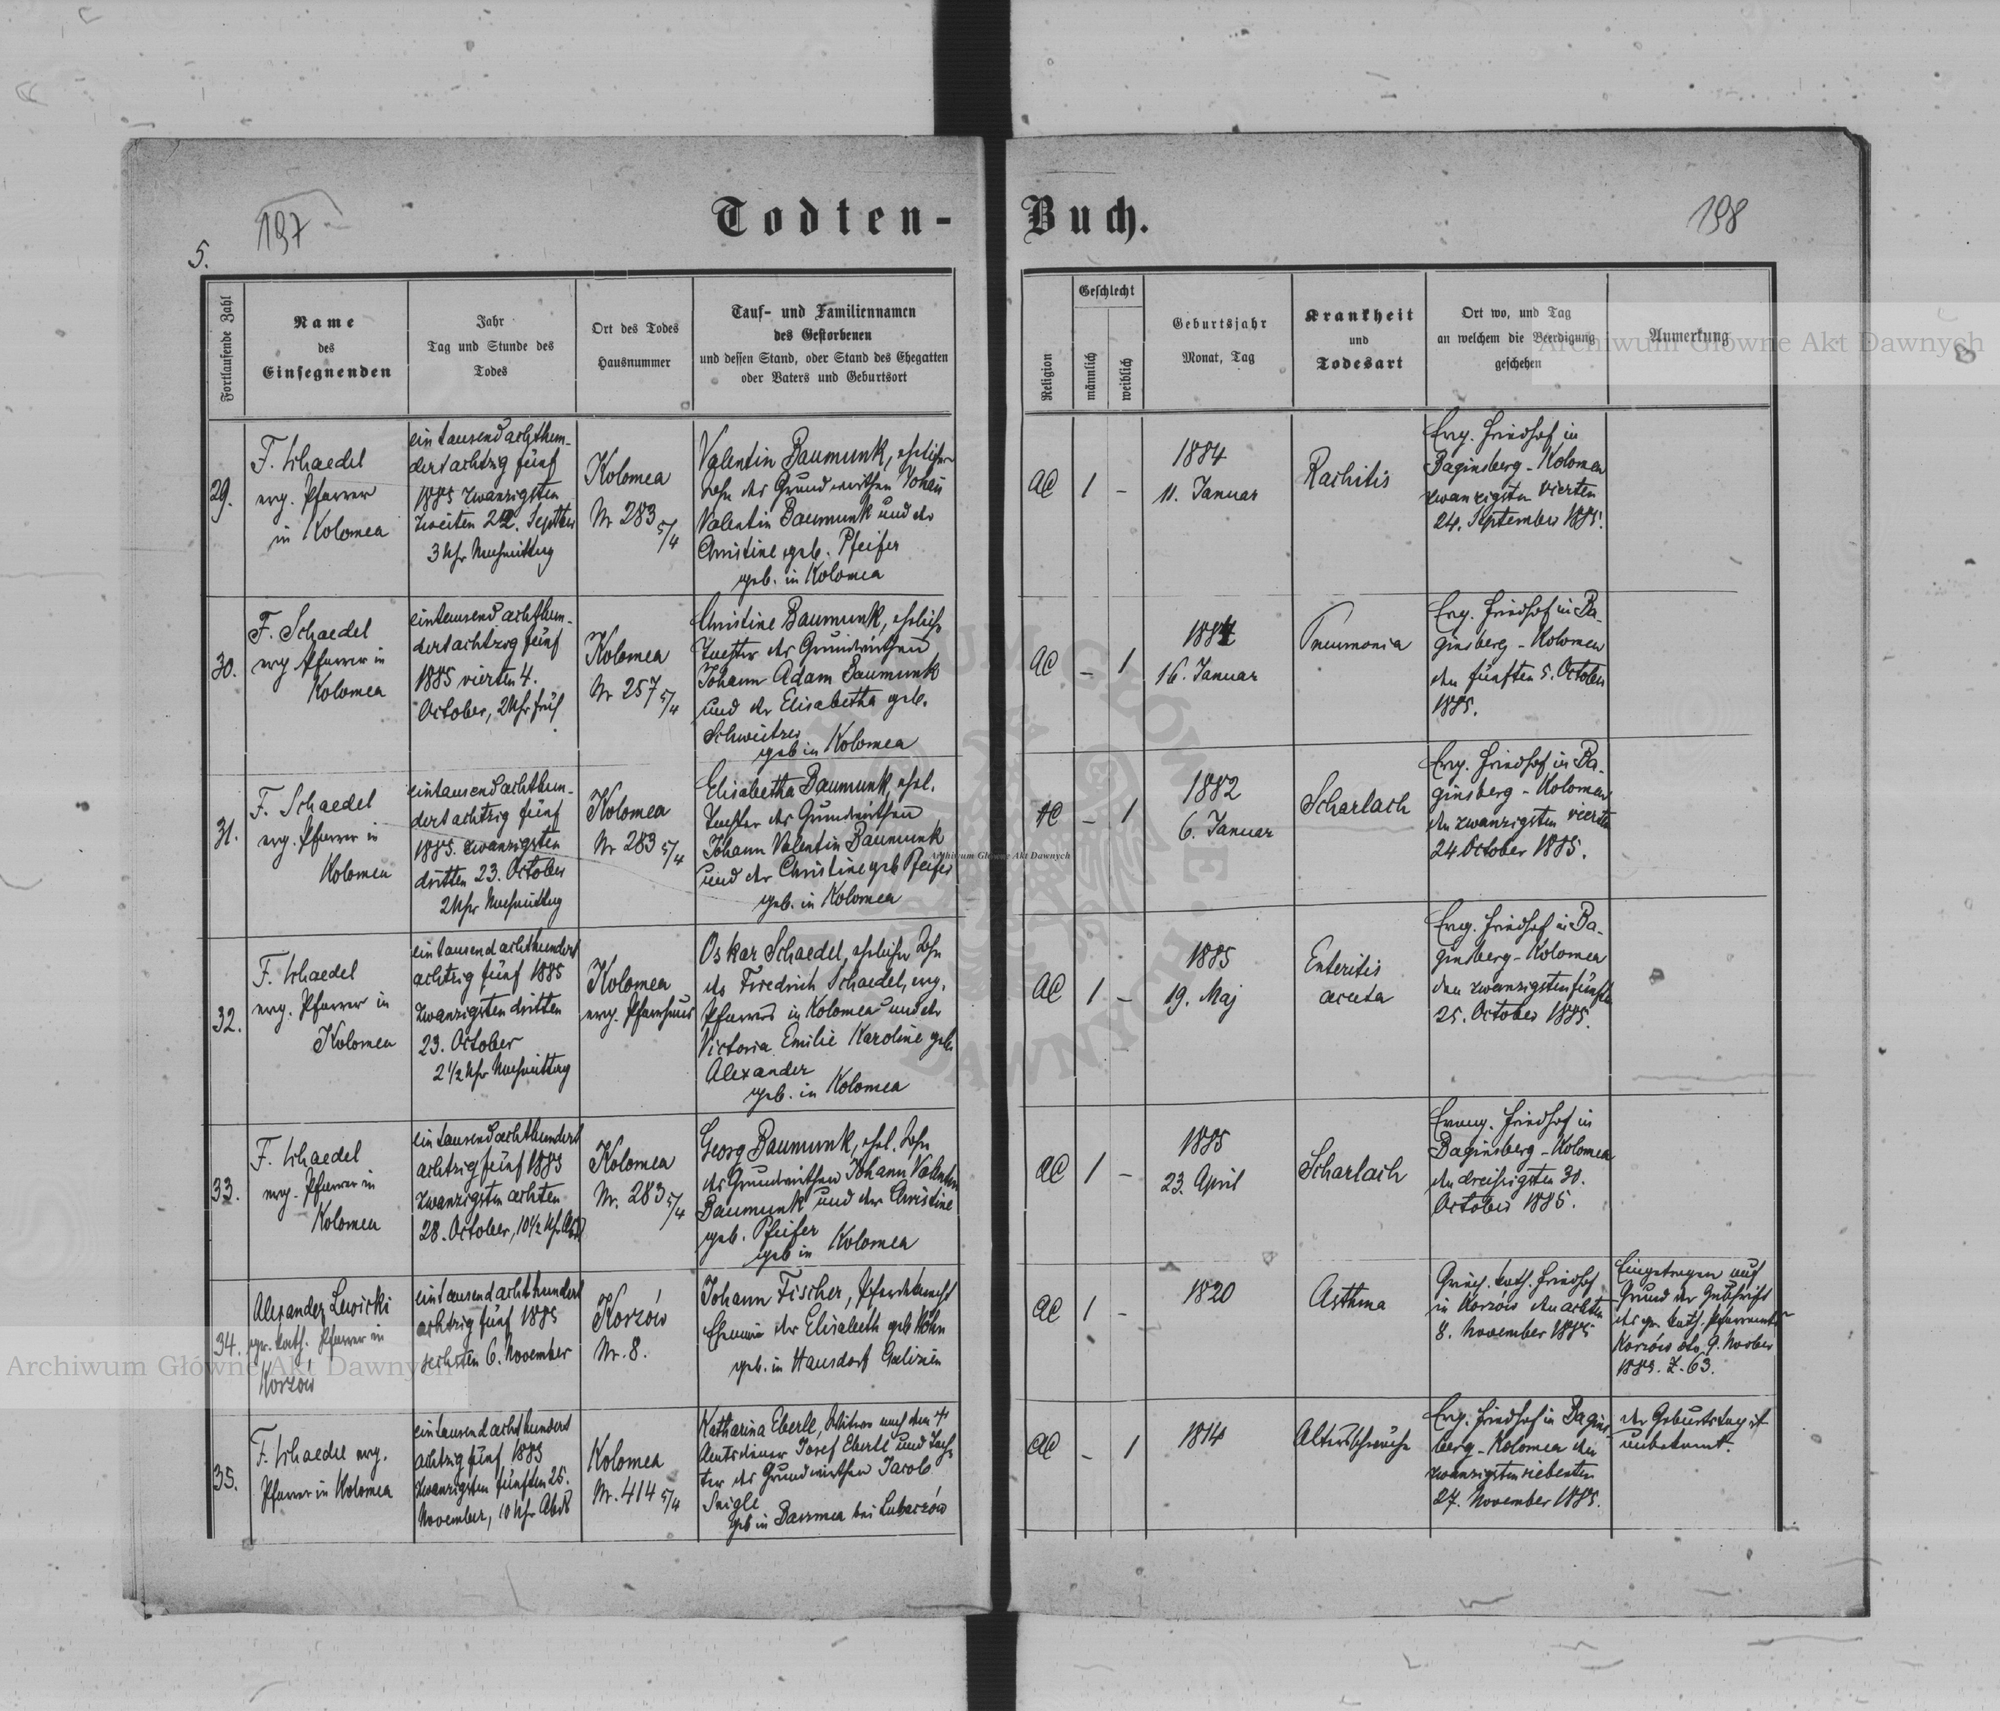 Todten-Buch.
5.
197
198
Fortlaufende Zahl
Name
des
Einsegnenden
Jahr
Tag und Stunde des
Todes
Ort des Todes
Hausnummer
Tauf- und Familiennamen
des Gestorbenen
und dessen Stand, oder Stand des Ehegatten
oder Vaters und Geburtsort
Religion
Geschlecht
männlich
weiblich
Geburtsjahr
Monat, Tag
Krankheit
und
Todesart
Ort wo, und Tag
an welchem die Beerdigung
geschehen
Anmerkung
29.
F. Schaedel
evg. Pfarrer
in Kolomea
ein tausend achthun-
dert achtzig fünf
1885 zwanzigsten
zweiten 22. Septber
3 Uhr Nachmittag
Kolomea
Nr 283 5/4
Valentin Baumunk, ehelicher
Sohn des Grundwirthen Johan
Valentin Baumunk und der
Christine geb. Pfeifer
geb. in Kolomea
AC
1
-
1884
11. Januar
Rachitis
Evg. Friedhof in
Baginsberg - Kolomea
zwanzigsten vierten
24. September 1885.
30.
F. Schaedel
evg Pfarrer in
Kolomea
eintausend achthun-
dert achtzig fünf
1885 vierten 4.
October, 2 Uhr früh
Kolomea
Nr 257 5/4
Christine Baumunk, eheliche
Tochter des Grundwirthen
Johann Adam Baumunk
und der Elisabetha geb.
Schweitzer
geb in Kolomea
AC
-
1
1884
16. Januar
Pneumonia
Evg. Friedhof in Ba-
ginsberg - Kolomea
den fünften 5. October
1885.
31.
F. Schaedel
evg. Pfarrer in
Kolomea
eintausend achthun-
dert achtzig fünf
1885. zwanzigsten
dritten 23. October
2 Uhr Nachmittag
Kolomea
Nr 283 5/4
Elisabetha Baumunk, ehel.
Tochter des Grundwirthen
Johann Valentin Baumunk
und der Christine geb Pfeifer
geb. in Kolomea
AC
-
1
1882
6. Januar
Scharlach
Evg. Friedhof in Ba-
ginsberg - Kolomea
den zwanzigsten vierten
24 October 1885.
32.
F. Schaedel
evg. Pfarrer in
Kolomea
ein tausend achthundert
achtzig fünf 1885
zwanzigsten dritten
23. October
2 1/2 Uhr Nachmittag
Kolomea
evg. Pfarrhaus
Oskar Schaedel, ehelicher Sohn
des Friedrich Schaedel, evg.
Pfarrers in Kolomea und der
Victoria Emilie Karoline geb.
Alexander
geb. in Kolomea
AC
1
-
1885
19. Maj
Enteritis
acuta
Evg. Friedhof in Ba-
ginsberg - Kolomea
den zwanzigsten fünften
25. October 1885.
33.
F. Schaedel
evg. Pfarrer in
Kolomea
ein tausend achthundert
achtzig fünf 1885
zwanzigsten achten
28. October, 10 1/2 Uhr Abd
Kolomea
Nr. 283 5/4
Georg Baumunk, ehel. Sohn
des Grundwirthen Johann Valentin
Baumunk und der Christine
geb. Pfeifer
geb in Kolomea
AC
1
-
1885
23. April
Scharlach
Evang. Friedhof in
Baginsberg - Kolomea
den dreißigsten 30.
October 1885.
34.
Alexander Lewicki
gr. kath. Pfarrer in
Korzów
ein tausend achthundert
achtzig fünf 1885
sechsten 6. November
Korzów
Nr. 8.
Johann Fischer, Pferdeknecht
Ehemann der Elisabeth geb Höhn
geb. in Hausdorf Galizien
AC
1
-
1820
Asthma
Griech. kath. Friedhof
in Korzów den achten
8. November 1885
Eingetragen auf
Grund der Zuschrift
des gr. kath. Pfarramtes
Korzów dto 9. Novber
1885. Z. 63.
35.
F. Schaedel evg.
Pfarrer in Kolomea
ein tausend achthundert
achtzig fünf 1885
zwanzigsten fünften 25.
November, 10 Uhr Abds
Kolomea
Nr. 414 5/4
Katharina Eberle, Witwe nach dem +
Amtsdiener Josef Eberle und Toch-
ter des Grundwirthen Jacob
geb in bei Lubaczów
AC
-
1
1814
Altersschwäche
Evg. Friedhof in Bagins
berg - Kolomea den
zwanzigsten siebenten
27. November 1885.
der Geburtstag ist
unbekannt.
Archiwum Główne Akt Dawnych
Archiwum Główne Akt Dawnych
Archiwum Główne Akt Dawnych